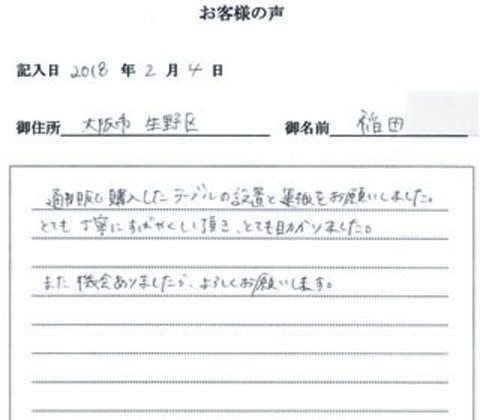 お客様の声
記入日 2018 年 2 月 4 日
御住所 大阪市 生野区 御名前 稲田
通販で購入したテーブルの設置と運搬をお願いしました。
とても丁寧にすばやくして頂き、とても助かりました。
また機会ありましたら、よろしくお願いします。